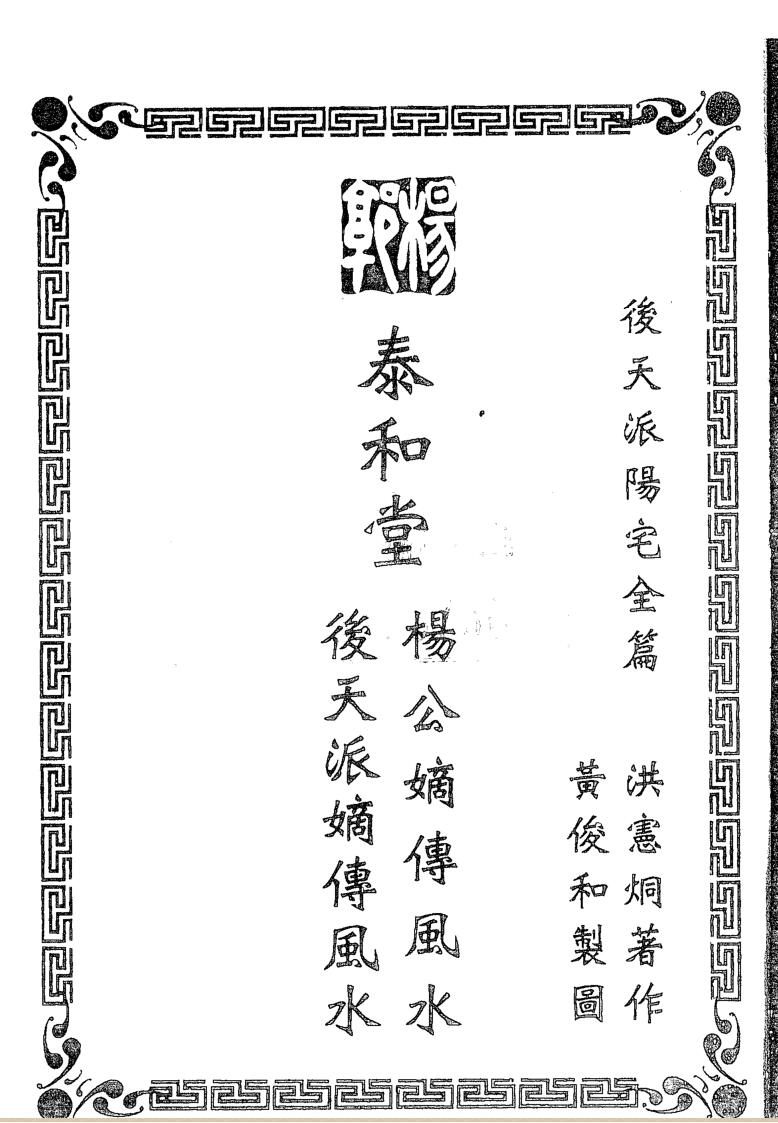 後天派陽宅全篇
洪憲炯著作
黃俊和製圖
楊郭
泰和堂
楊公嫡傳風水
後天派嫡傳風水